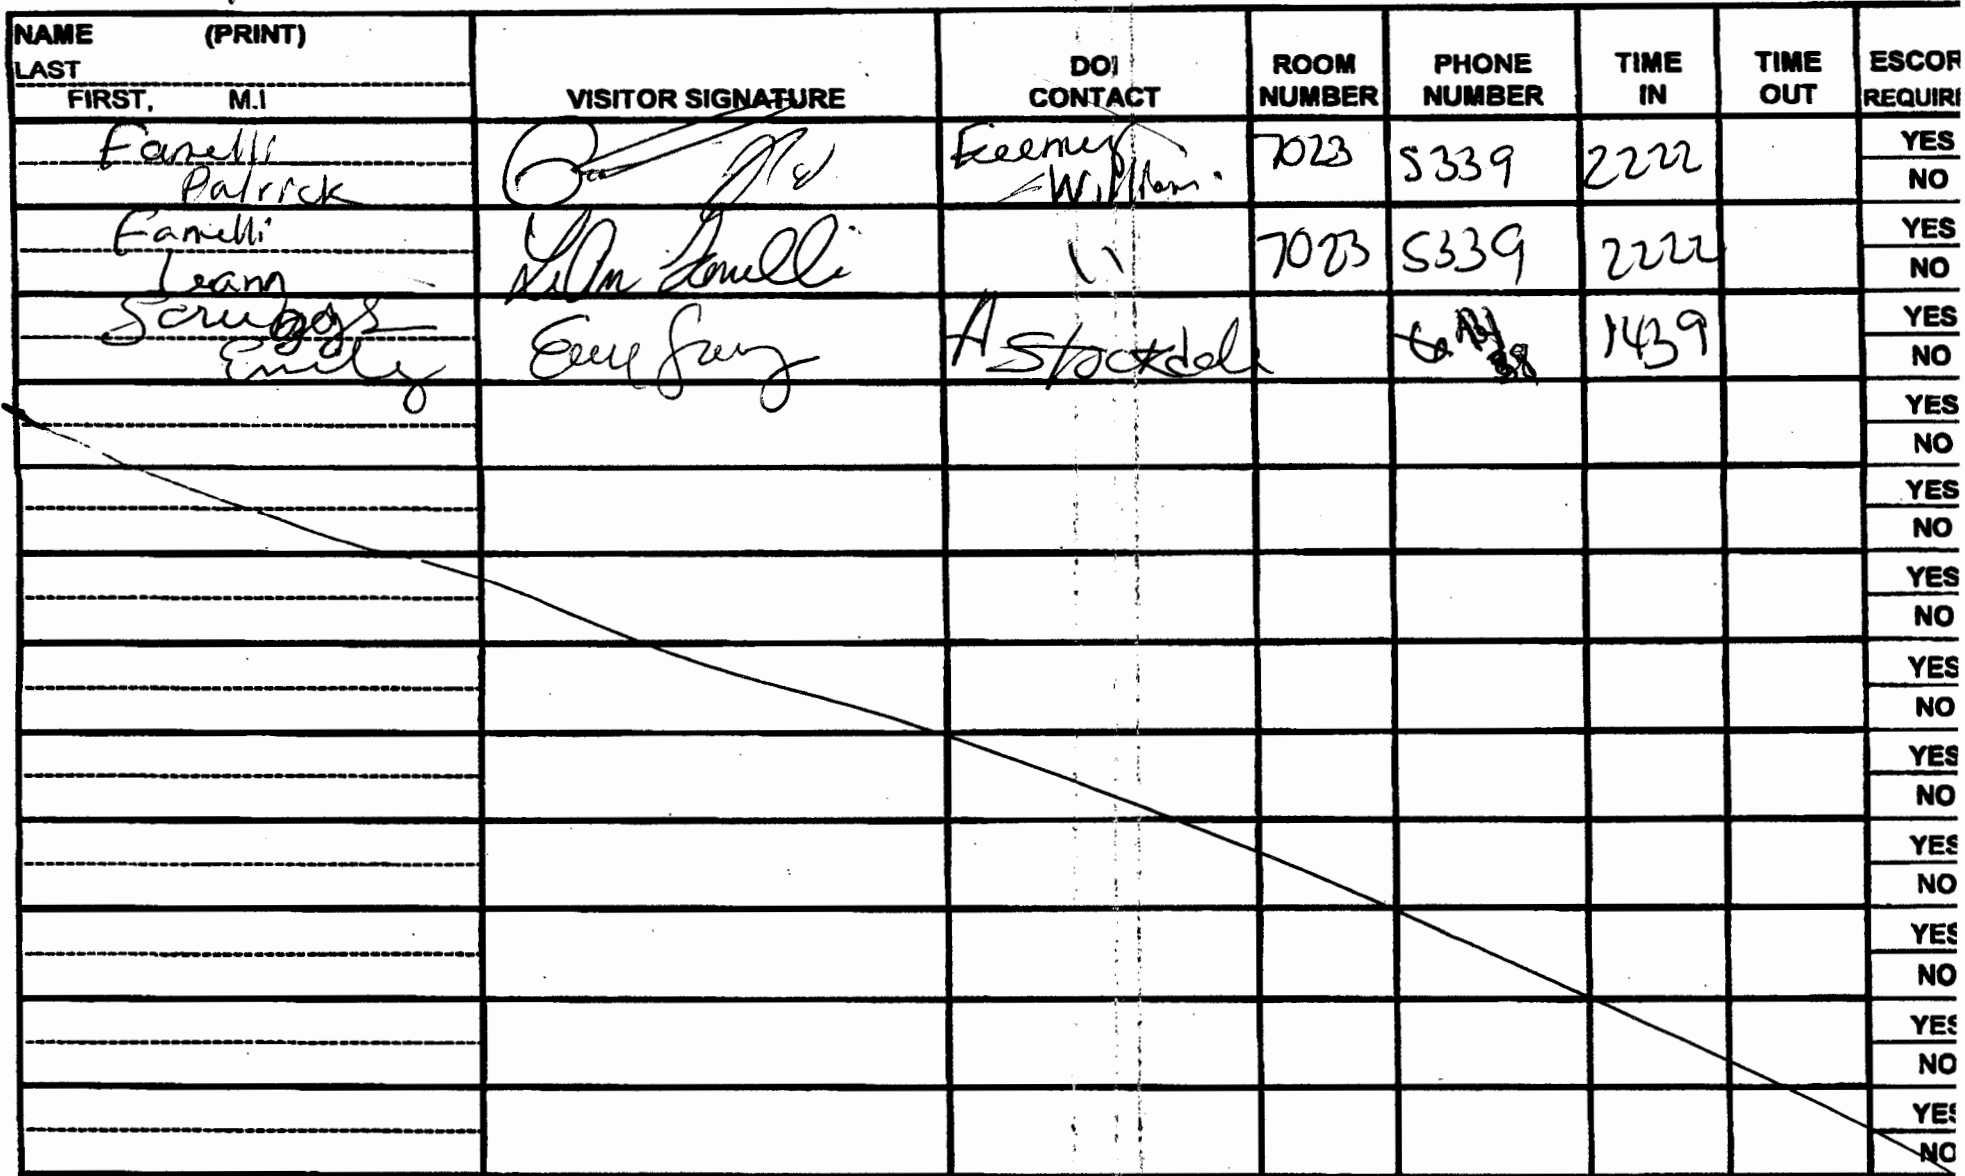 NAME (PRINT)
LAST
FIRST, M.I
VISITOR SIGNATURE
DOI
CONTACT
ROOM
NUMBER
PHONE
NUMBER
TIME
IN
TIME
OUT
ESCOR
REQUIRE
Fanelli
Patrick
William
7023
5339
2222
YES
NO
Fanelli
Leann
LeAn Fanelli
"
7023
5339
2222
YES
NO
Scruggs
Emily
A Stockdale
1439
YES
NO
YES
NO
YES
NO
YES
NO
YES
NO
YES
NO
YES
NO
YES
NO
YES
NO
YES
NO